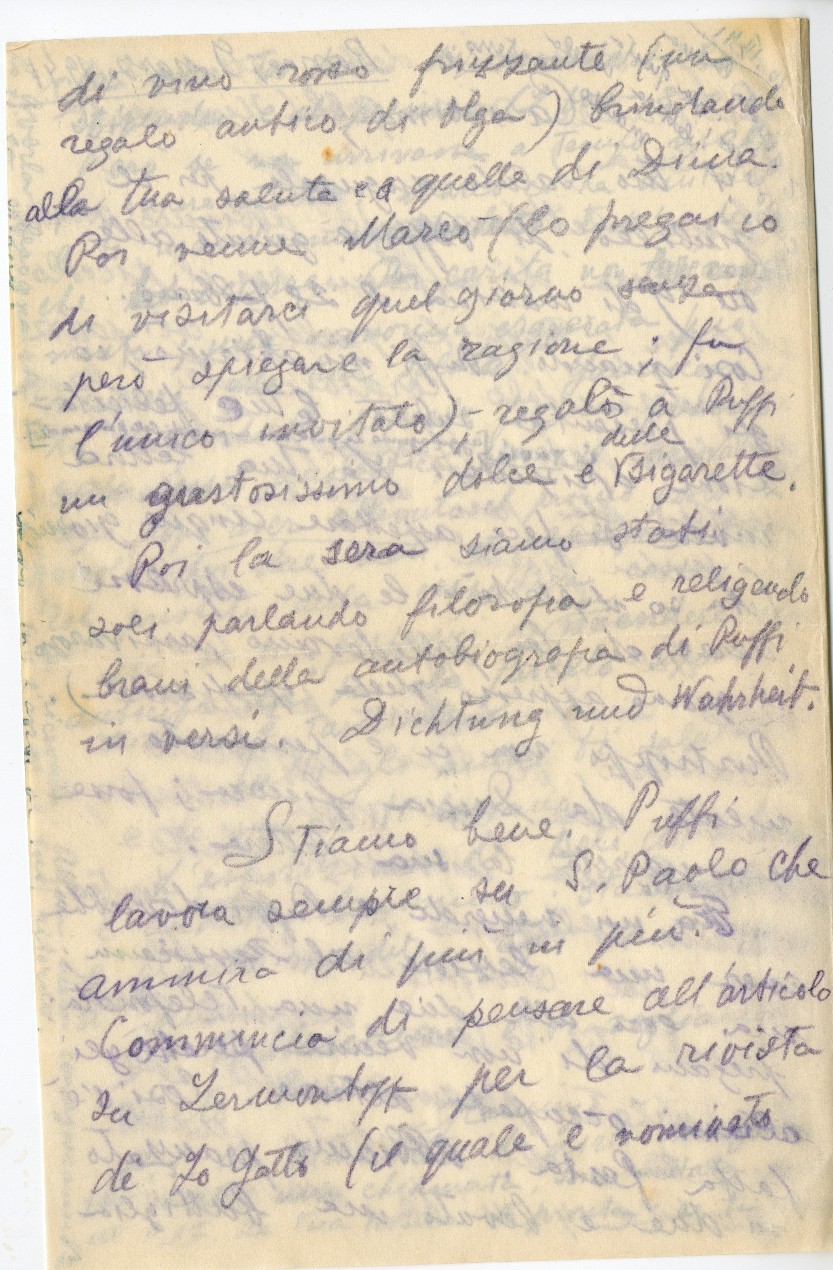 di vino rosso frizzante (un
regalo antico di Olga) brindando
alla tua salute e a quella di Dima.
Poi venne Marco (lo pregai io
di visitarci quel giorno senza
però spiegare la ragione; fu
l'unico invitato), - regalò a Puffi
un gustosissimo dolce e delle Bigarette.
Poi la sera siamo stati
soli parlando filosofia e religendo
brani della autobiografia di Puffi
in versi. Dichtung und Wahrheit.
Stiamo bene. Puffi
lavora sempre su S. Paolo che
ammira di più in più.
Commincia di pensare all'articolo
su Lermontoff per la rivista
di Lo Gatto (il quale è nominato